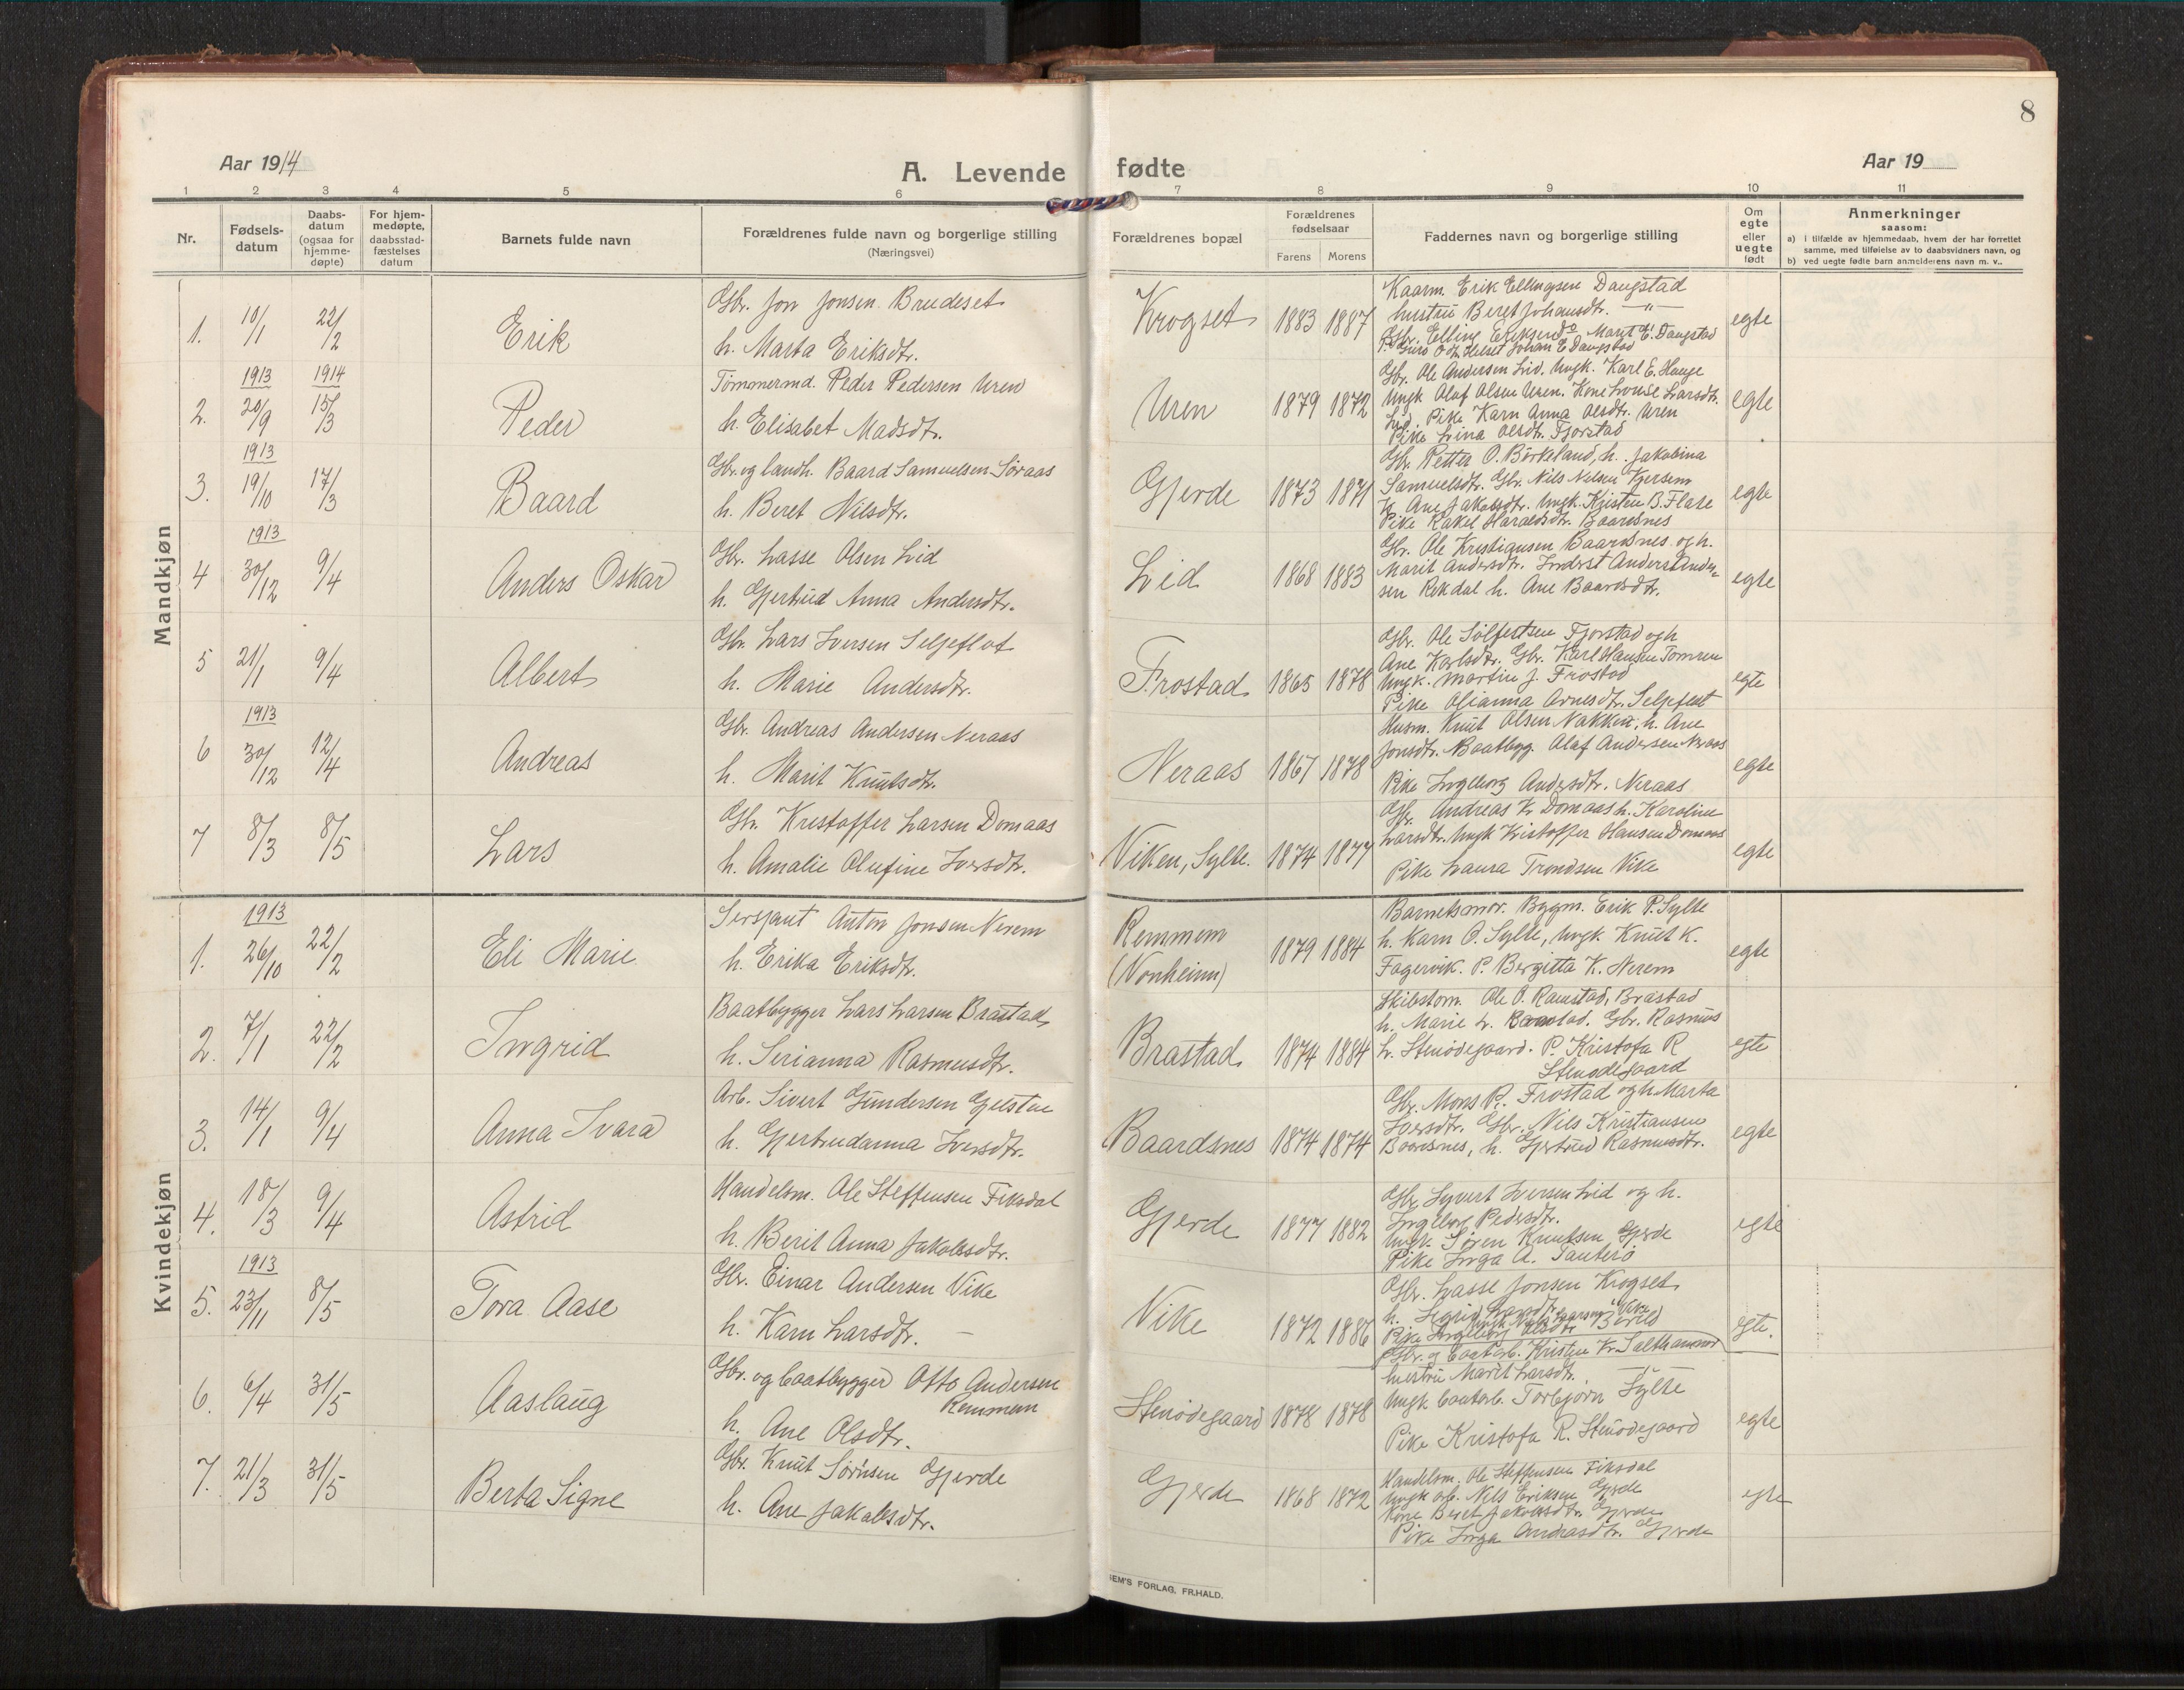 8
Aar 1914
A. Levende fødte
Aar 19
1 2 3 4 5 6 7 8 9 10 11
Nr.
Fødsels-
datum
Daabs-
datum
(ogsaa for
hjemme-
døpte)
For hjem-
medøpte,
daabsstad-
fæstelses
datum
Barnets fulde navn
Forældrenes fulde navn og borgerlige stilling
(Næringsvei)
Forældrenes bopæl
Forældrenes
fødselsaar
Farens Morens
Faddernes navn og borgerlige stilling
Om
egte
eller
uegte
født
Anmerkninger
saasom:
a) i tilfælde av hjemmedaab, hvem der har forrettet
samme, med tilføielse av to daabsvidners navn, og
b) ved uegte fødte barn anmelderens navn m. v..
Mandkjøn
1. 10/1 22/2 Erik
Gbr. Jon Jonsen Brudeset
h. Marta Eriksdtr.
Krogset 1883 1887
Kaarm. Erik Ellingsen Daugstad
hustru Beret Johansdtr. —"—
Gbr. Elling Eriksen do Marit E. Daugstad
Johan E Daugstad
egte
2. 1913 20/9 1914 15/3 Peder
Tømmermd. Peder Pedersen Uren
h. Elisabet Madsdtr.
Uren 1879 1872
Gbr. Ole Andersen Lid. Ungk. Karl E. Hauge
Ungk Olaf Olsen Uren. Kone Lovise Larsdtr.
Lid. Pike Karn Anna Olsdtr. Uren
Pike Lina Olsdtr. Fjorstad
egte
3. 1913 19/10 17/3 Baard
Gbr. og landh. Baard Samuelsen Søraas
h. Beret Nilsdtr.
Gjerde 1873 1871
Gbr. Petter O. Børkeland, h. Jakobina
Samuelsdtr. Gbr. Nils Nilsen Gjersem
h. Ane Jakobsdtr. Ungk. Kristen B. Flate
Pike Rakel Haraldsdtr. Baardsnes
egte
4 1913 30/12 9/4 Anders Oskar
Gbr. Lasse Olsen Lid
h. Gjertrud Anna Andersdtr.
Lid 1868 1883
Gbr. Ole Kristiansen Baardsnes og h.
Marit Andersdtr. Inderst Anders Ander-
sen Rekdal h. Ane Baardsdtr.
egte
5 21/1 9/4 Albert
Gbr. Lars Iversen Seljeflot
h. Marie Andersdtr.
Frostad 1865 1878
Gbr. Ole Sølfestsen Fjorstad og h
Ane Karlsdtr. Gbr. Karl Hansen Tomren
Ungk. Martin J. Frostad
Pike Olianna Arnesdtr. Seljeflot
egte
6 1913 30/12 12/4 Andreas
Gbr. Andreas Andersen Neraas
h. Marit Knutsdtr.
Neraas 1867 1878
Husm. Knut Olsen Nakken, h. Ane
Jonsdtr. Baatbyg. Olaf Andersen Neraas
Pike Ingeborg Andersdtr. Neraas
egte
7 8/3 8/5 Lars
Gbr. Kristoffer Larsen Domaas
h. Amalie Olufine Iversdtr.
Viken, Sylte. 1874 1877
Gbr. Andreas K. Domaas h. Karoline
Larsdtr. Ungk Kristoffer Hansen Domaas
Pike Laura Trondsen Vike
egte
Kvindekjøn
1. 1913 26/10 22/2 Eli Marie
Sersjant Anton Jonsen Nerem
h. Erika Eriksdtr.
Remmem
(Vonheim)
1879 1884
Barnetsmor. Bygm. Erik P. Sylte
h. Karn O. Sylte, Ungk Knut K.
Fagervik. P. Bergitta K. Nerem
egte
2. 7/1 22/2 Ingrid
Baatbygger Lars Larsen Brastad
h. Serianna Rasmusdtr.
Brastad 1874 1884
Skibstøm. Ole O. Ramstad, Brastad
h. Marie L. Ramstad. Gbr. Rasmus
L. Stenødegaard. P. Kristofa R
Stenødegaard
egte
3. 14/1 9/4 Anna Ivara
Arb. Sivert Gundersen Gjelstue
h. Gjertrudanna Iversdtr.
Baardsnes 1874 1874
Gbr. Mons P. Frostad og h Marta
Iversdtr. Gbr. Nils Kristiansen
Baardsnes, h. Gjertrud Rasmusdtr.
egte
4. 18/3 9/4 Astrid
Handelsm. Ole Steffensen Fiksdal
h. Berit Anna Jakobsdtr.
Gjerde 1877 1882
Gbr Syvert Iversen Lid og h.
Ingeborg Pedersdtr.
Ungk. Søren Knutsen Gjerde
Pike Inga A. Tauterø
egte
5. 1913 23/11 8/5 Tora Aase
Gbr. Einar Andersen Vike
h. Karn Larsdtr.
Vike 1872 1886
Gbr. Lasse Jonsen Krogset
h. Sigrid Larsdtr.
Pike Ingeborg Olsdtr
egte.
6. 6/4 31/5 Aaslaug
Gbr. og baatbygger Otto Andersen
Remmem
h. Ane Olsdtr.
Stenødegaard 1878 1878
Gbr. og baatarb. Kristen Kr. Salthammer
hustru Marit Larsdtr. —"—
Ungk baatarb. Torbjørn Sylte
Pike Kristofa R. Stenødegaard
egte
7. 21/3 31/5 Berta Signe
Gbr. Knut Sørnsen Gjerde
h. Ane Jakobsdtr.
Gjerde 1868 1872
Handelsm. Ole Steffensen Fiksdal
Ungk arb. Nils Eriksen Gjerde
Kone Beret Jakobsdtr. Gjerde
Pike Inga Andreasdtr. Gjerde
egte
SEM'S FORLAG, FR.HALD.